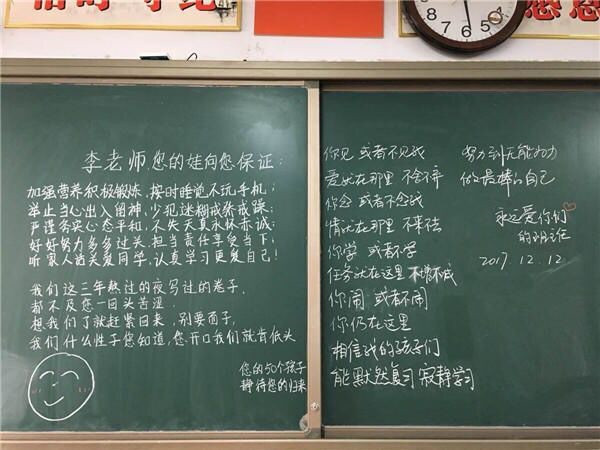 李老师您的娃向您保证：
加强营养积极锻炼，按时睡觉不玩手机；
举止当心出入留神，少犯迷糊戒骄戒躁；
严谨务实心态平和，不失天真永怀赤诚；
好好努力多多过头，担当责任享受当下；
听家人话关爱同学，认真学习更爱自己！
我们这三年熬过的夜写过的卷子，
都不及您一回头苦涩
想我们了就赶紧回来，别要面子，
我们什么性子您知道，您开口我们就肯低头
您的50个孩子
静待您的归来
你见 或者不见我
爱就在那里 不舍不弃
你念 或者不念我
情就在那里 不来不去
你学 或者不学
任务就在这里 不增不减
你闹 或者不闹
你仍在这里
相信我的孩子们
能默然复习 寂静学习
努力到无能为力
做最棒的自己
永远爱你们
的
2017.12.12